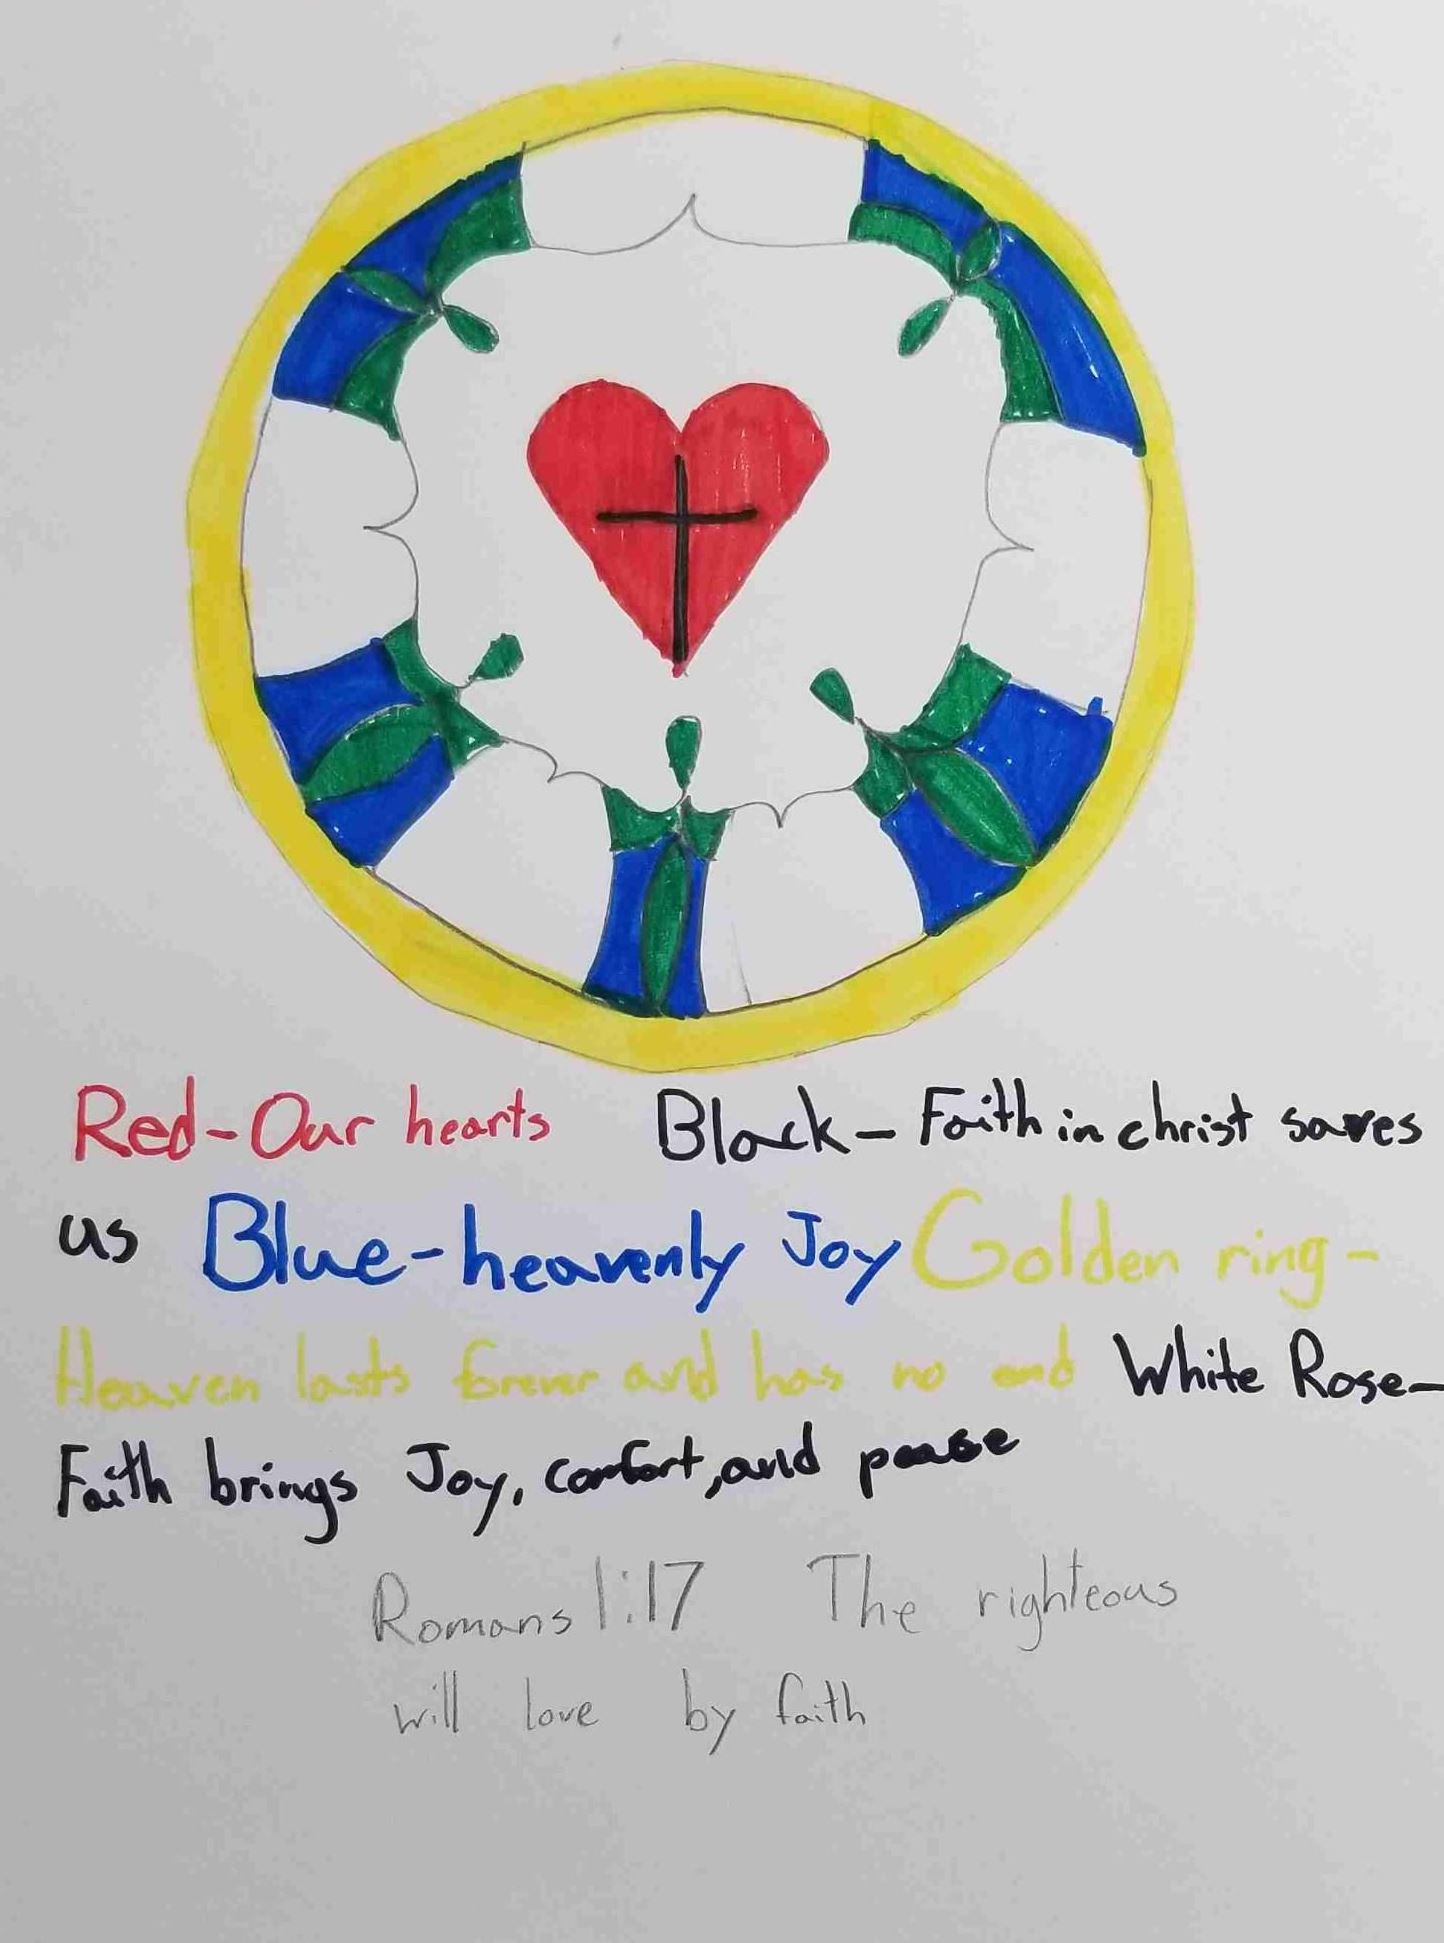 Red-Our hearts Black-Faith in christ saves
us Blue-heavenly Joy Golden ring-
Heaven lasts forever and has no end White Rose-
Faith brings Joy, comfort, and pease
Romans 1:17 The righteous
will love by faith